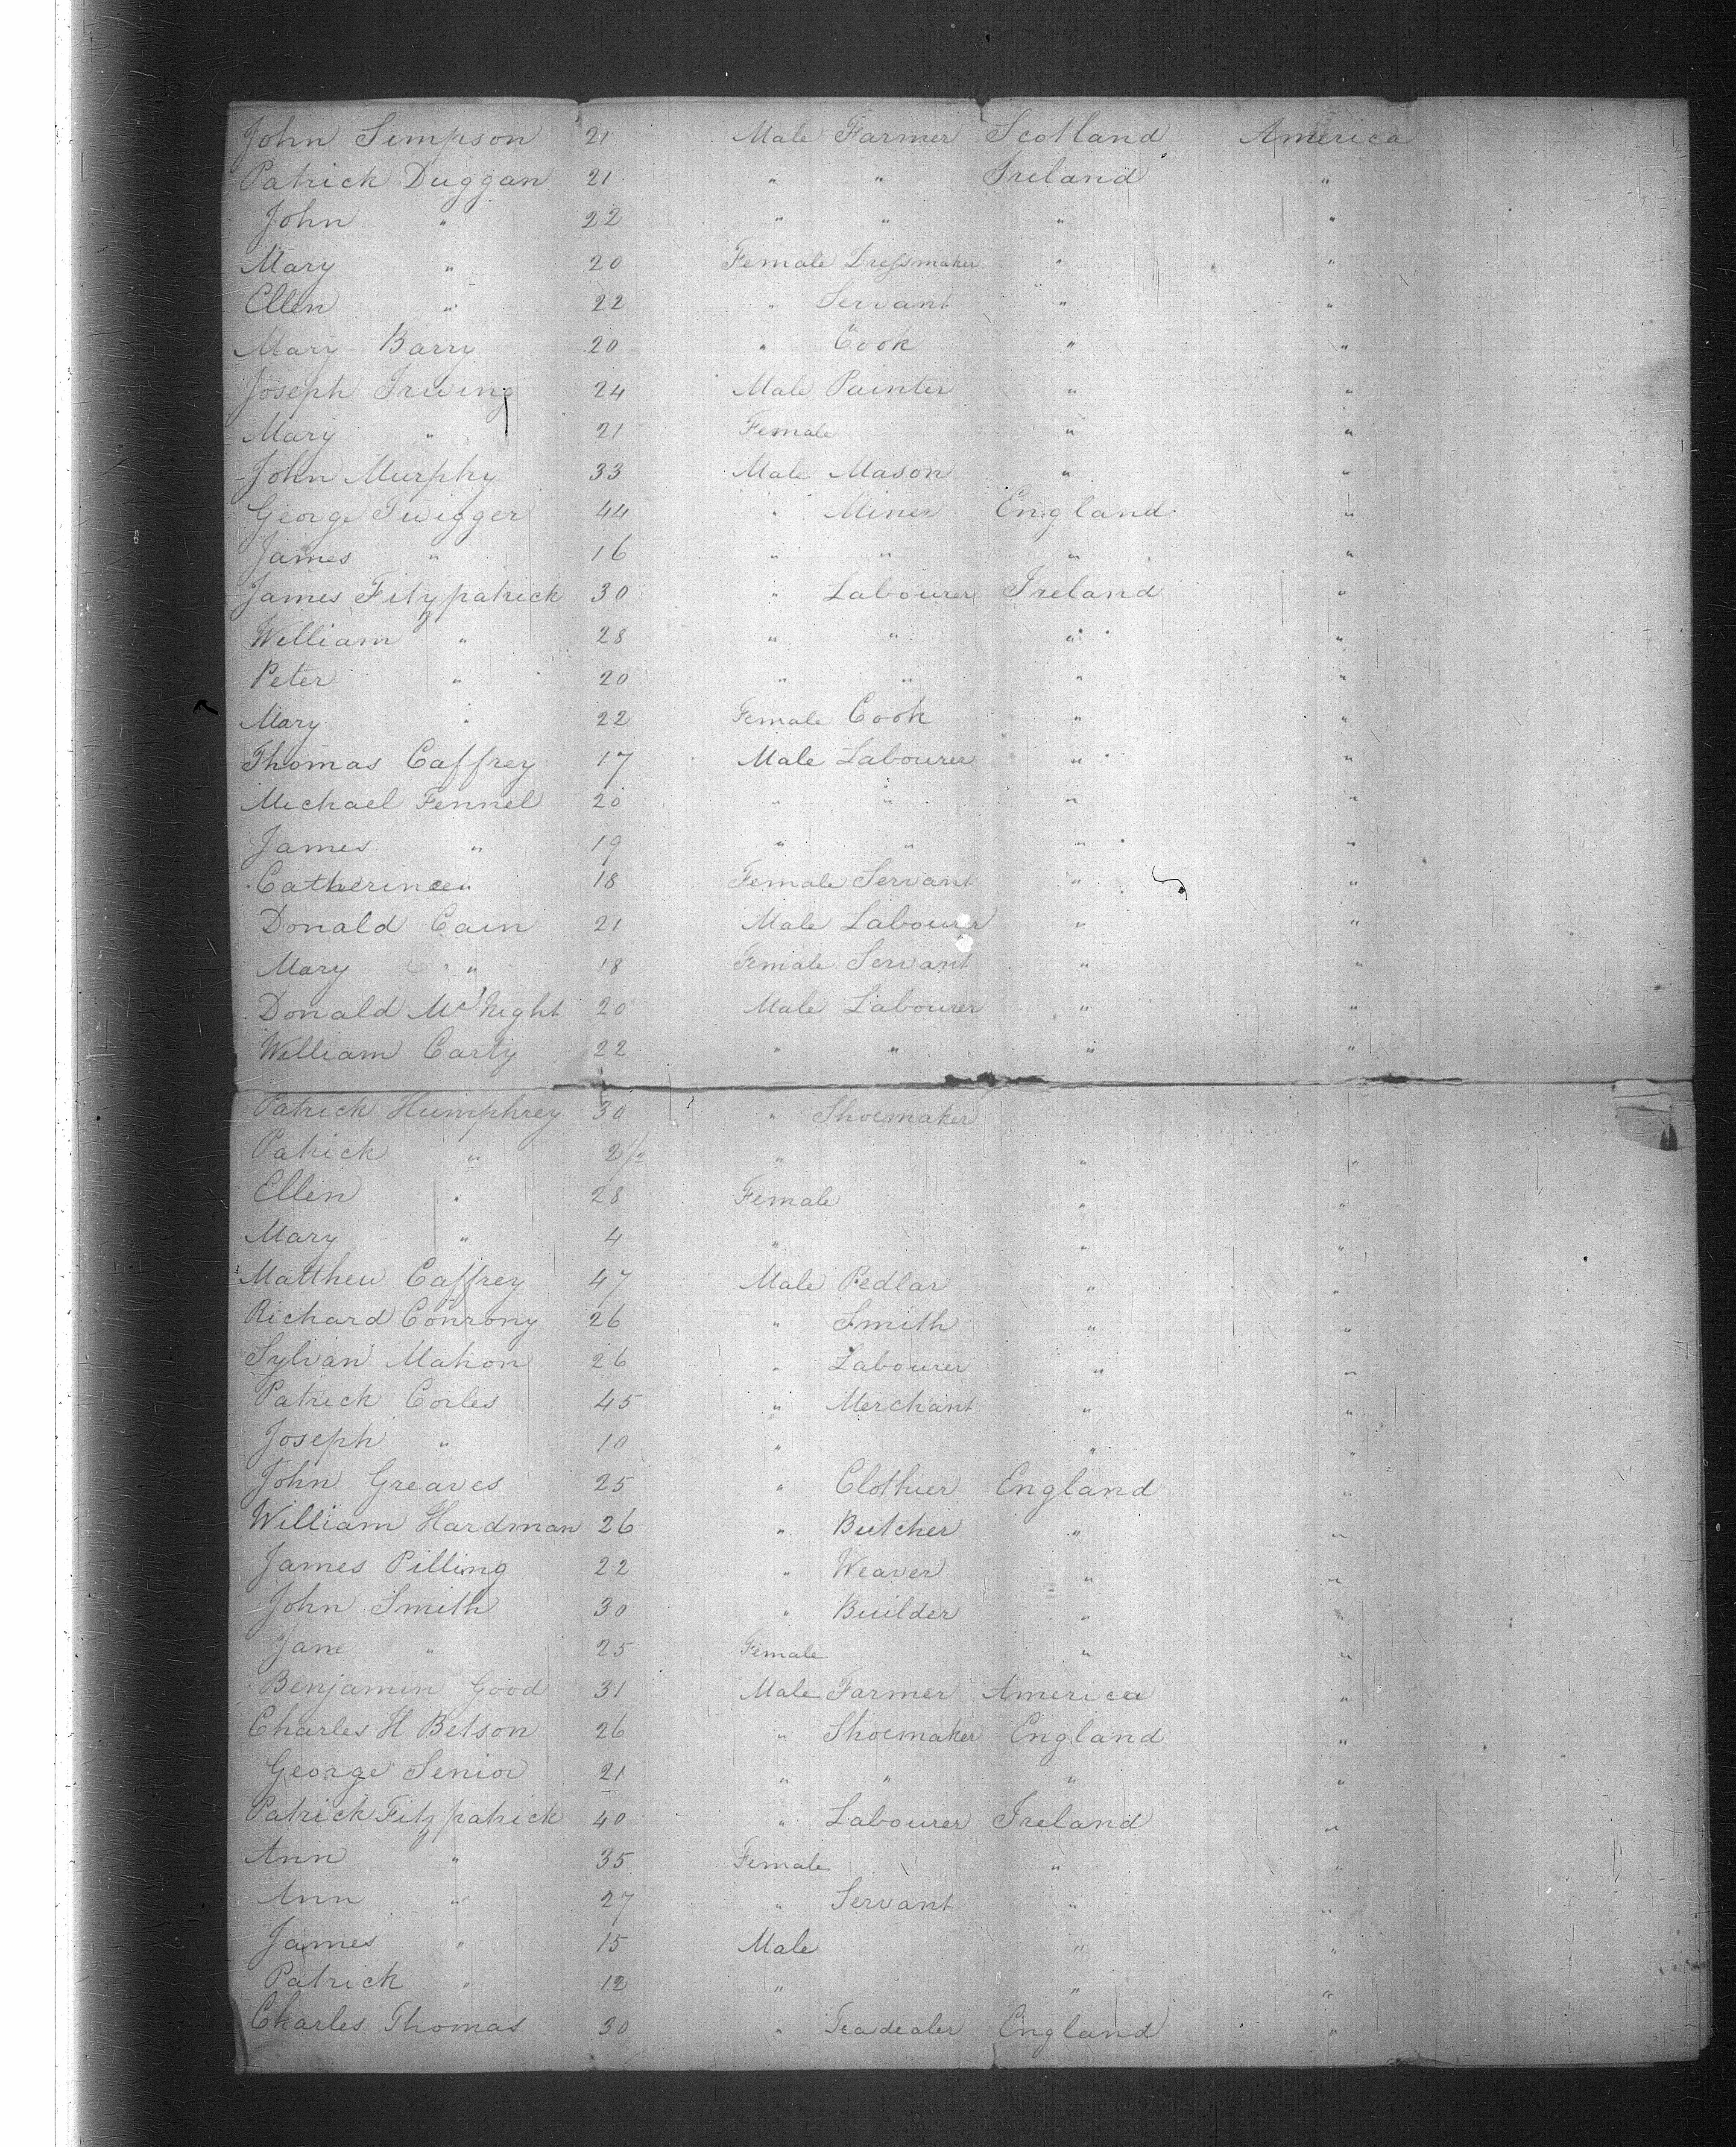 John Simpson 21 Male Farmer Scotland America
Patrick Duggan 21 " " Ireland "
John " 22 " " " "
Mary " 20 Female Dressmaker " "
Ellen " 22 " Servant " "
Mary Barry 20 " Cook " "
Joseph Irving 24 Male Painter " "
Mary " 21 Female " "
John Murphy 33 Male Mason " "
George Twigger 44 " Miner England "
James " 16 " " " "
James Fitzpatrick 30 " Labourer Ireland "
William " 28 " " " "
Peter " 20 " " " "
Mary " 22 Female Cook " "
Thomas Caffrey 17 Male Labourer " "
Michael Fennel 20 " " " "
James " 19 " " " "
Catherine " 18 Female Servant " "
Donald Cain 21 Male Labourer " "
Mary " 18 Female Servant " "
Donald McNight 20 Male Labourer " "
William Carty 22 " " " "
Patrick Humphrey 30 " Shoemaker
Patrick " 2 1/2 " " "
Ellen " 28 Female " "
Mary " 4 " " "
Matthew Caffrey 47 Male Pedlar " "
Richard Conrony 26 " Smith " "
Sylvan Mahon 26 " Labourer " "
Patrick Corles 45 " Merchant " "
Joseph " 10 " " "
John Greaves 25 " Clothier England "
William Hardman 26 " Butcher " "
James Pilling 22 " Weaver " "
John Smith 30 " Builder " "
Jane " 25 Female " "
Benjamin Good 31 Male Farmer America "
Charles H Betson 26 " Shoemaker England "
George Senior 21 " " " "
Patrick Fitzpatrick 40 " Labourer Ireland "
Ann " 35 Female " "
Ann " 27 " Servant " "
James " 15 Male " "
Patrick " 12 " " "
Charles Thomas 30 " Teadealer England "